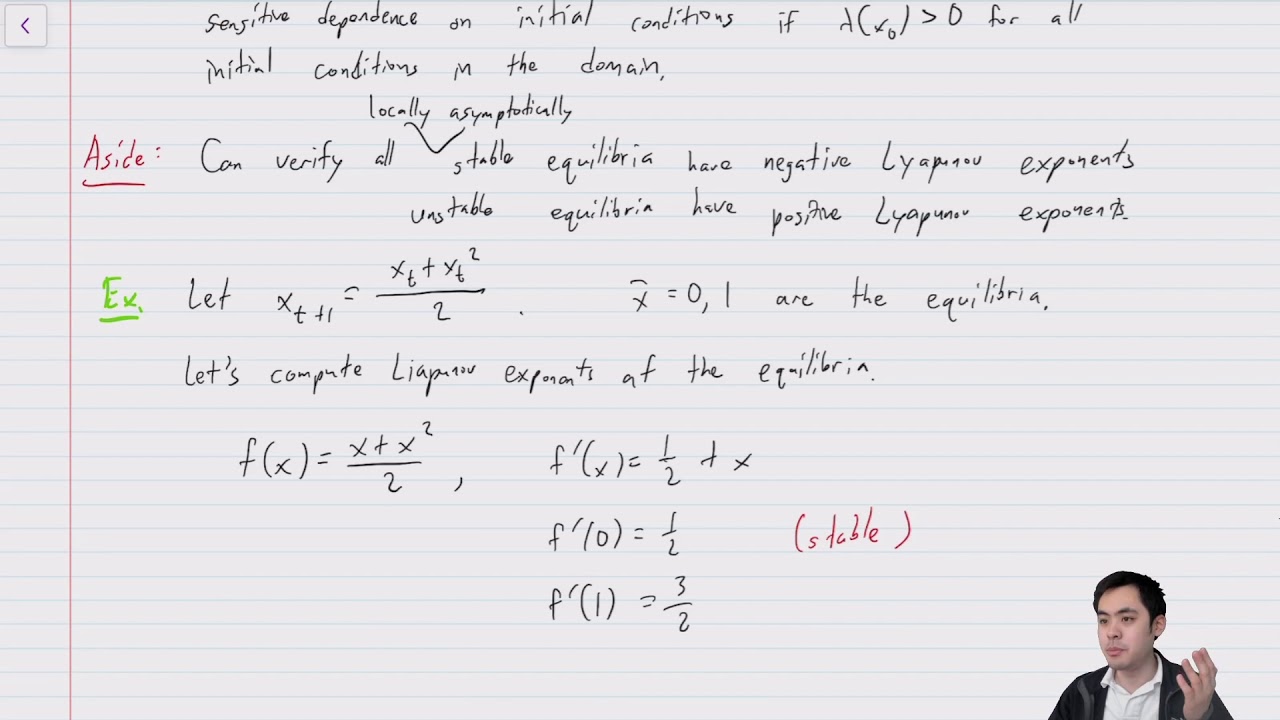 sensitive dependence on initial conditions if λ(x₀) > 0 for all
initial conditions in the domain.
locally asymptotically
Aside: Can verify all stable equilibria have negative Lyapunov exponents
unstable equilibria have positive Lyapunov exponents.
Ex. Let x_{t+1} = (x_t + x_t²)/2 . x̄ = 0, 1 are the equilibria.
Let's compute Liapunov exponents of the equilibria.
f(x) = (x + x²)/2 , f'(x) = 1/2 + x
f'(0) = 1/2 (stable)
f'(1) = 3/2